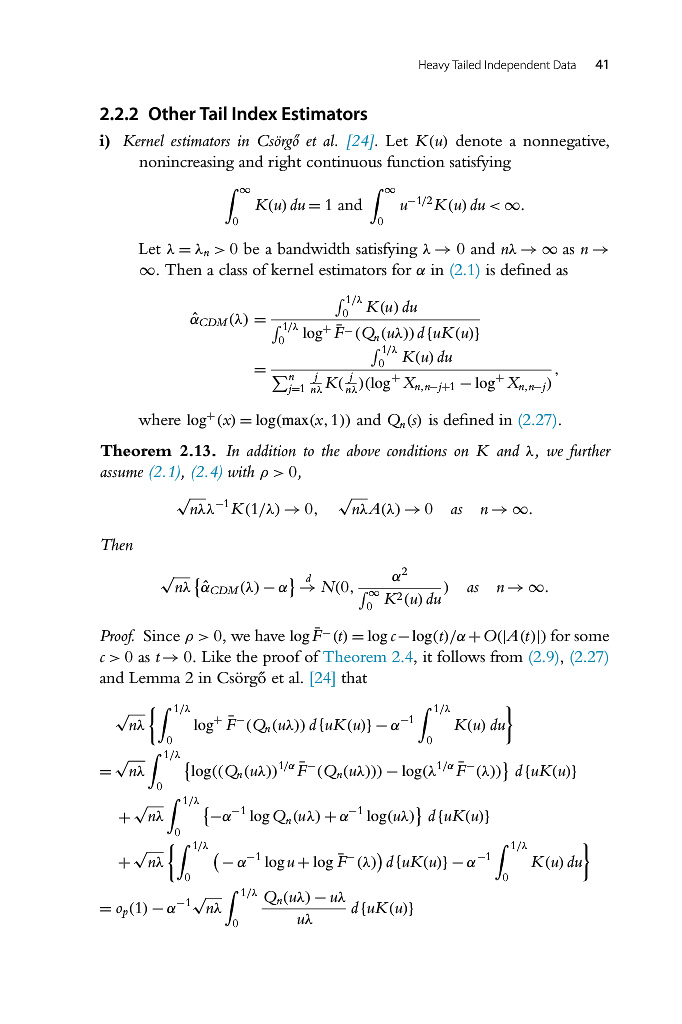 Heavy Tailed Independent Data 41
2.2.2 Other Tail Index Estimators
i) Kernel estimators in Csörgő et al. [24]. Let K(u) denote a nonnegative,
nonincreasing and right continuous function satisfying
∫_0^∞ K(u) du = 1 and ∫_0^∞ u^{−1/2} K(u) du < ∞.
Let λ = λ_n > 0 be a bandwidth satisfying λ → 0 and nλ → ∞ as n →
∞. Then a class of kernel estimators for α in (2.1) is defined as
α̂_{CDM}(λ) = \frac{∫_0^{1/λ} K(u) du}{∫_0^{1/λ} log^+ F̄^−(Q_n(uλ)) d{uK(u)}}
= \frac{∫_0^{1/λ} K(u) du}{∑_{j=1}^n \frac{j}{nλ} K(\frac{j}{nλ})(log^+ X_{n,n−j+1} − log^+ X_{n,n−j})},
where log^+(x) = log(max(x, 1)) and Q_n(s) is defined in (2.27).
Theorem 2.13. In addition to the above conditions on K and λ, we further
assume (2.1), (2.4) with ρ > 0,
√{nλ}λ^{−1}K(1/λ) → 0, √{nλ}A(λ) → 0 as n → ∞.
Then
√{nλ} {α̂_{CDM}(λ) − α} \xrightarrow{d} N(0, \frac{α^2}{∫_0^∞ K^2(u) du}) as n → ∞.
Proof. Since ρ > 0, we have log F̄^−(t) = log c − log(t)/α + O(|A(t)|) for some
c > 0 as t → 0. Like the proof of Theorem 2.4, it follows from (2.9), (2.27)
and Lemma 2 in Csörgő et al. [24] that
√{nλ} {∫_0^{1/λ} log^+ F̄^−(Q_n(uλ)) d{uK(u)} − α^{−1} ∫_0^{1/λ} K(u) du}
= √{nλ} ∫_0^{1/λ} {log((Q_n(uλ))^{1/α} F̄^−(Q_n(uλ))) − log(λ^{1/α} F̄^−(λ))} d{uK(u)}
+ √{nλ} ∫_0^{1/λ} {−α^{−1} log Q_n(uλ) + α^{−1} log(uλ)} d{uK(u)}
+ √{nλ} {∫_0^{1/λ} (− α^{−1} log u + log F̄^−(λ)) d{uK(u)} − α^{−1} ∫_0^{1/λ} K(u) du}
= o_p(1) − α^{−1}√{nλ} ∫_0^{1/λ} \frac{Q_n(uλ) − uλ}{uλ} d{uK(u)}